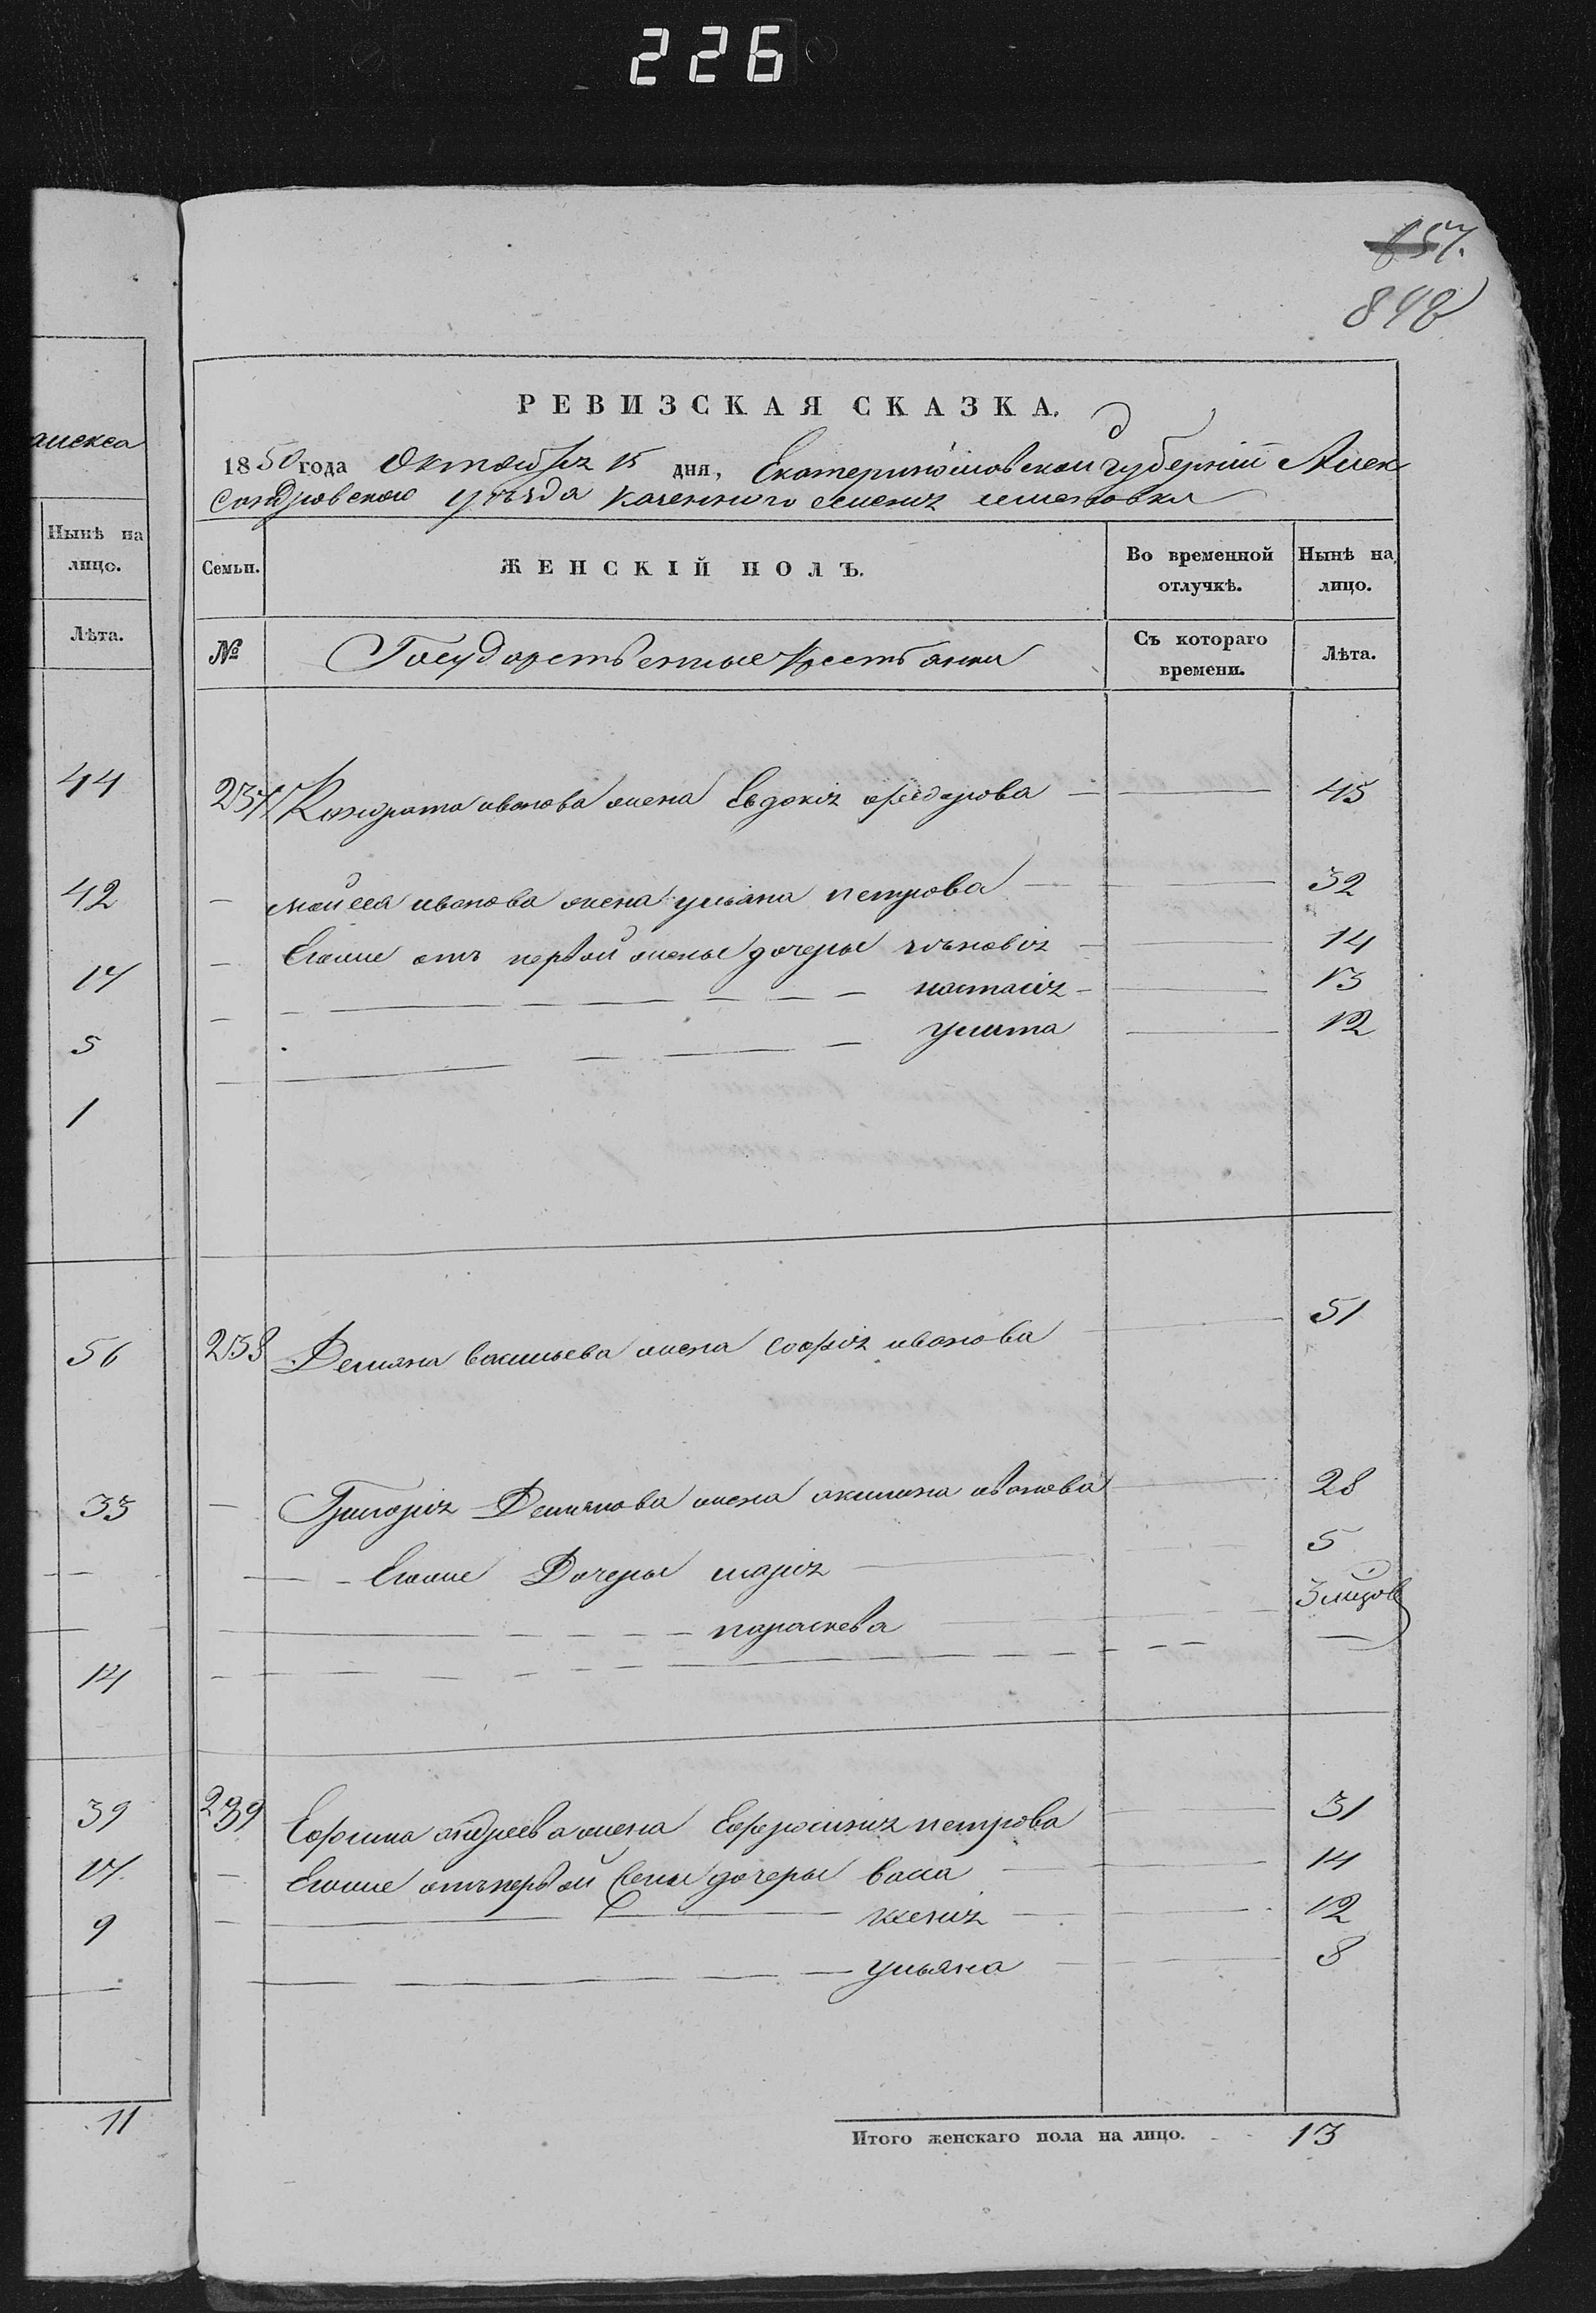 226
857.
848
алекса
Нынѣ на
лицо.
Лѣта.
44
42
17
5
1
56
33
14
39
17.
9
11
РЕВИЗСКАЯ СКАЗКА.
1850 года Октября 15 дня, Екатеринославской губерніи Алек
сандровского уѣзда казенного селенія
Семьи. ЖЕНСКІЙ ПОЛЪ. Во временной отлучкѣ. Нынѣ на лицо.
№ Государственные крестьянки Съ котораго времени. Лѣта.
237 Кондрата иванова жена Евдокія федорова 45
мойсея иванова жена ульяна петрова 32
Егоже отъ первой жены дочеры зѣновія 14
настасія 13
улита 12
238 Демяна васильева жена софія иванова 51
Григорія Демянова жена акилина иванова 28
Егоже Дочеры марія 5
параскева 3 мѣсяцов
239 Ефима андреева жена Ефросинія петрова 31
Егоже отъ первой жены дочеры васа 14
ксенія 12
ульяна 8
Итого женскаго пола на лицо. 13